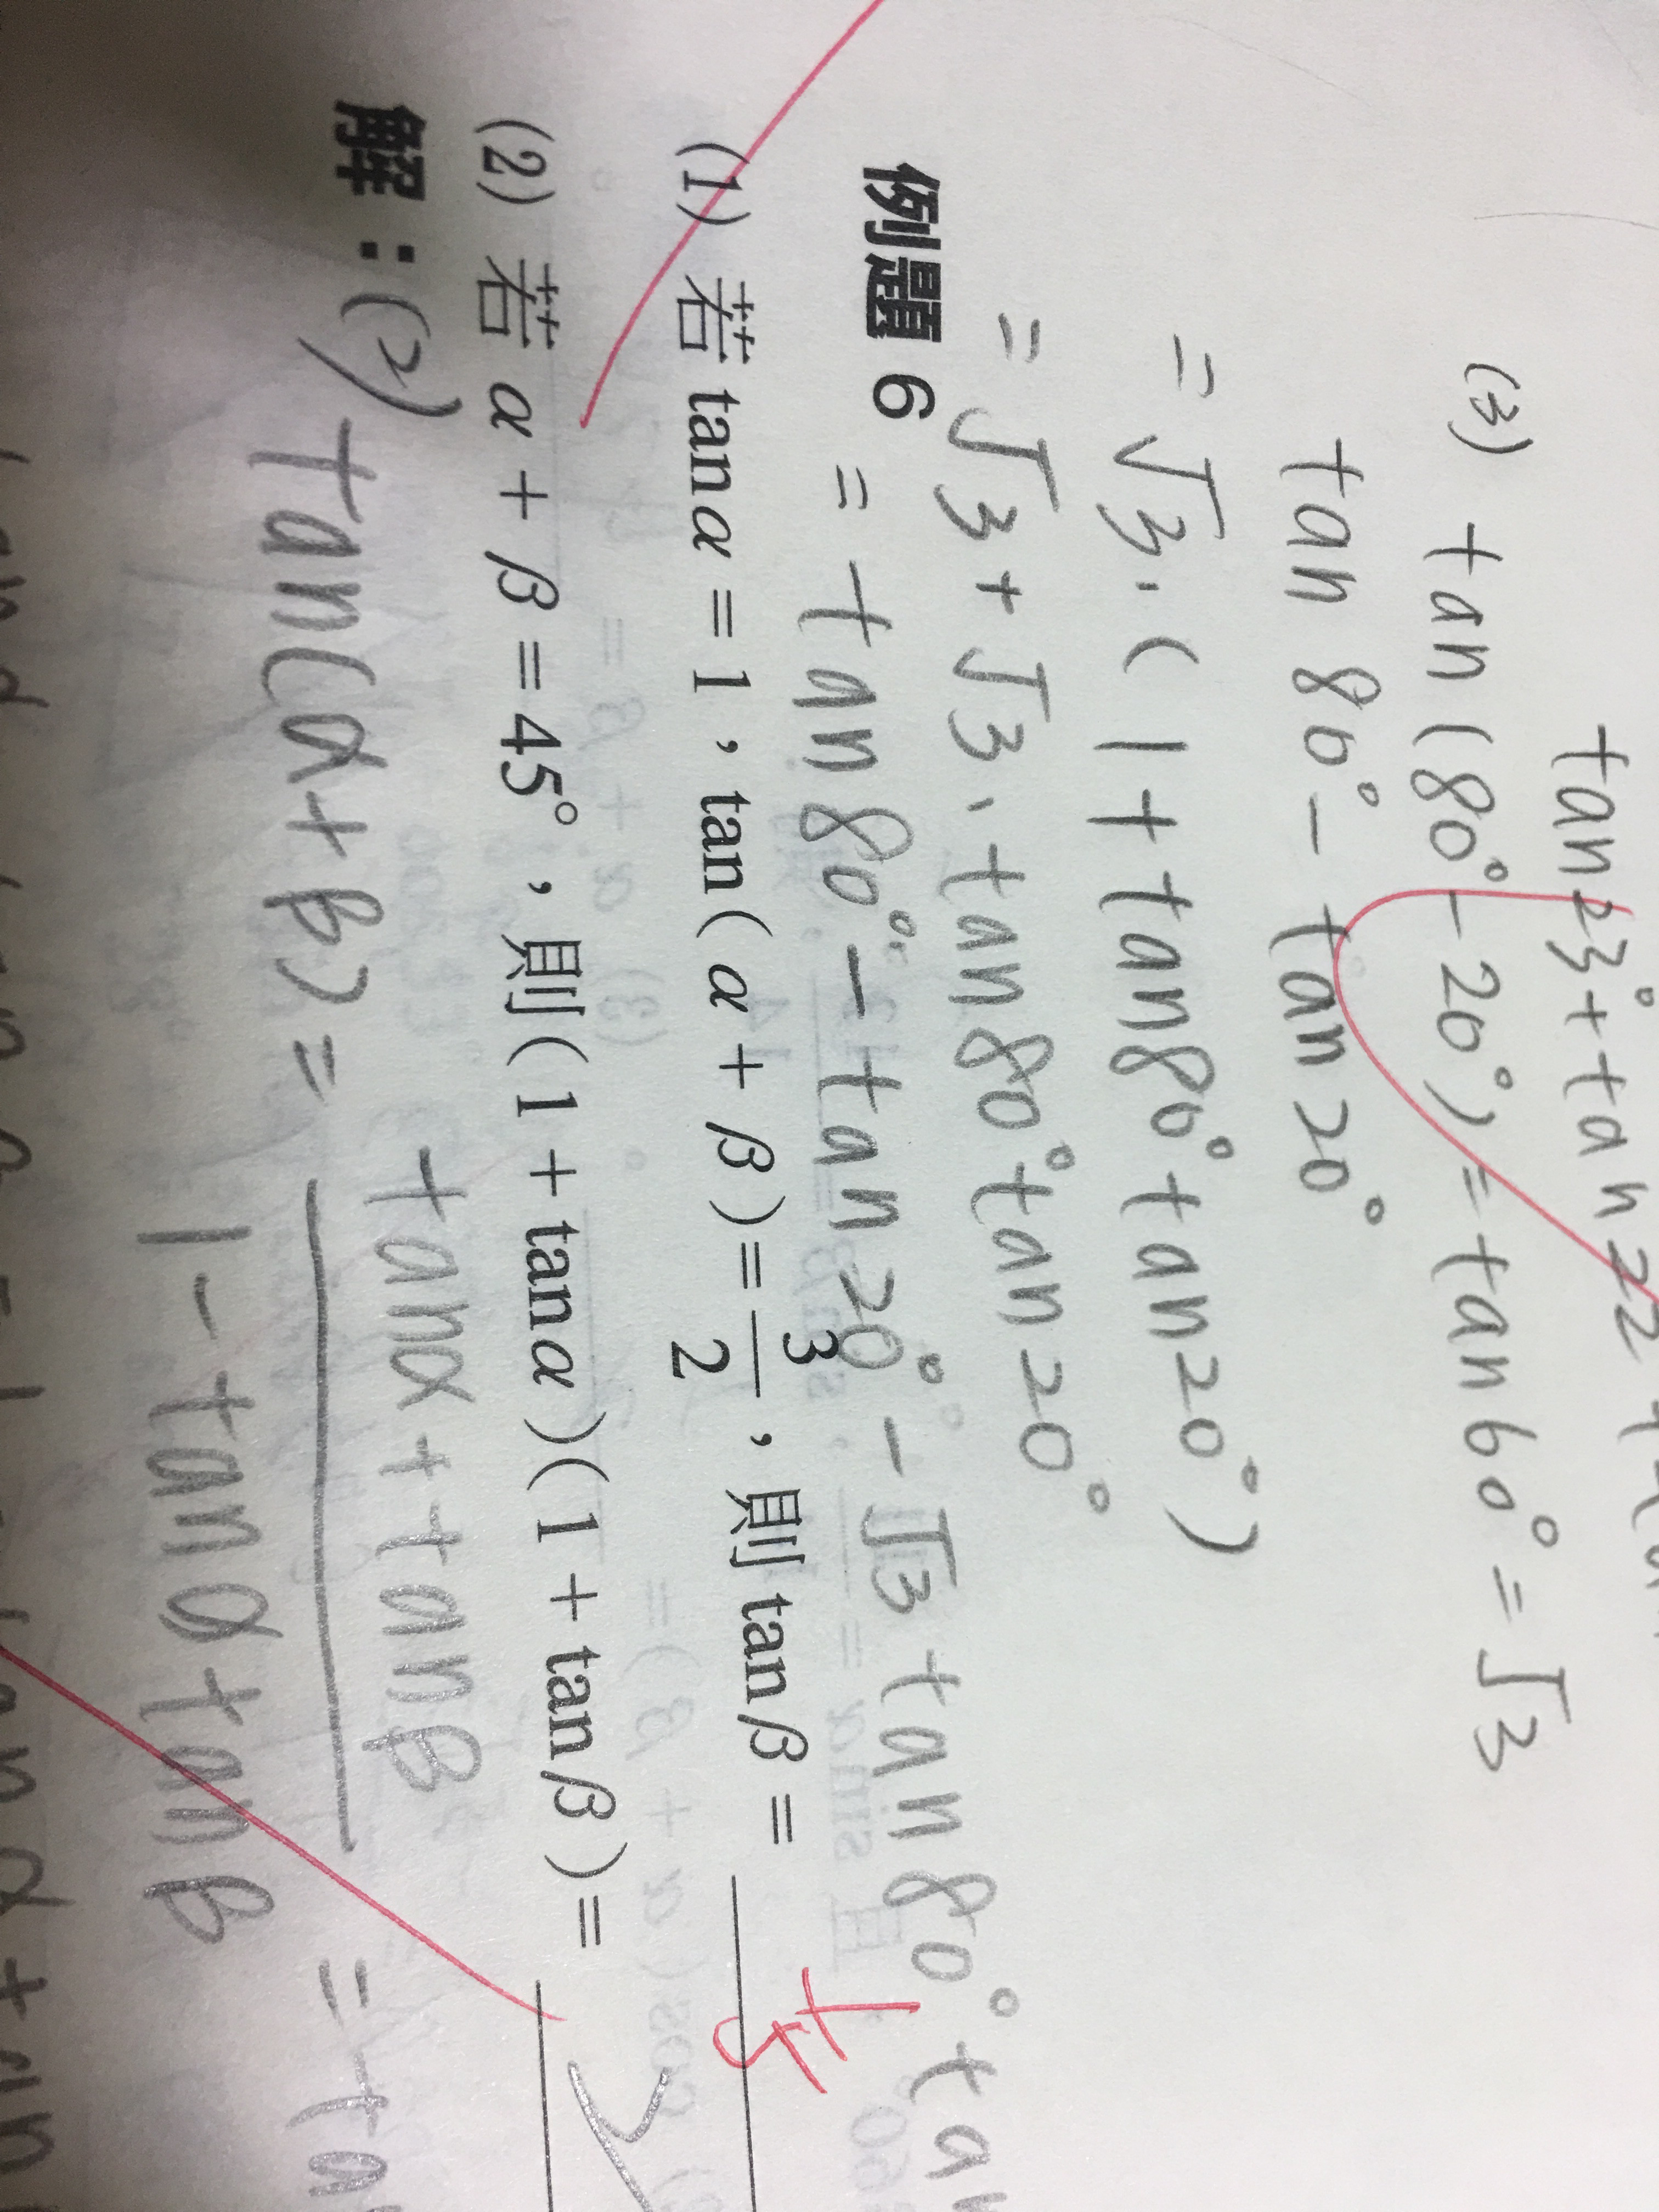 tan23°+tan22
(3) tan(80°-20°)=tan60°=√3
tan80°-tan20°
=√3.(1+tan80°tan20°)
=√3+√3.tan80°tan20°
=tan80°-tan20°-√3tan80°ta
例題 6
(1) 若 tanα=1,tan(α+β)=3/2,則 tanβ=
(2) 若 α+β=45°,則(1+tanα)(1+tanβ)= 2
解:(2) tan(α+β)= (tanα+tanβ)/(1-tanαtanβ) =ta